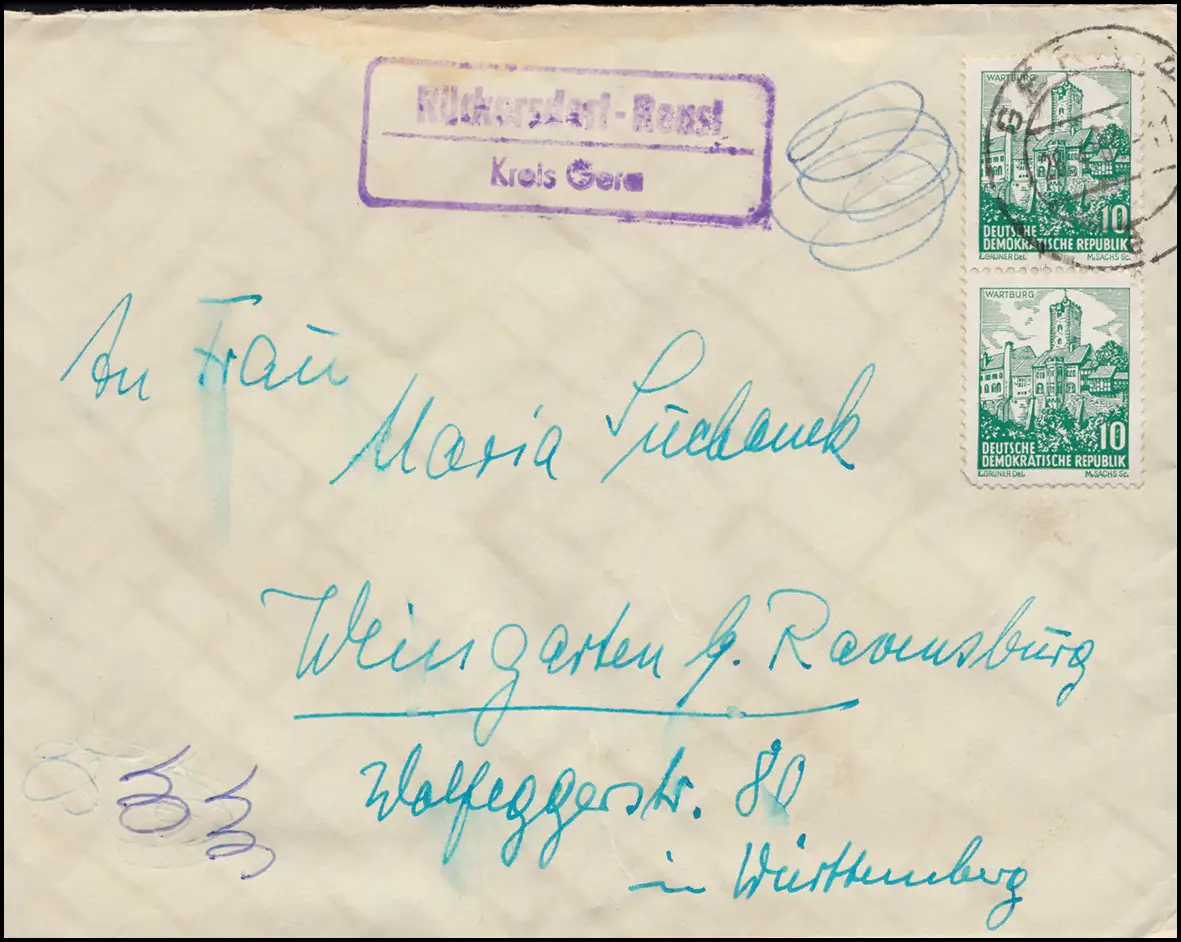 Rückersdorf-Reust
Kreis Gera
WARTBURG
10
DEUTSCHE
DEMOKRATISCHE REPUBLIK
E.GRUNER Del. M.SACHS Sc.
GERA
28
WARTBURG
10
DEUTSCHE
DEMOKRATISCHE REPUBLIK
E.GRUNER Del. M.SACHS Sc.
An Frau
Maria Suchanek
Weingarten b. Ravensburg
Wolfeggerstr. 80
in Württemberg